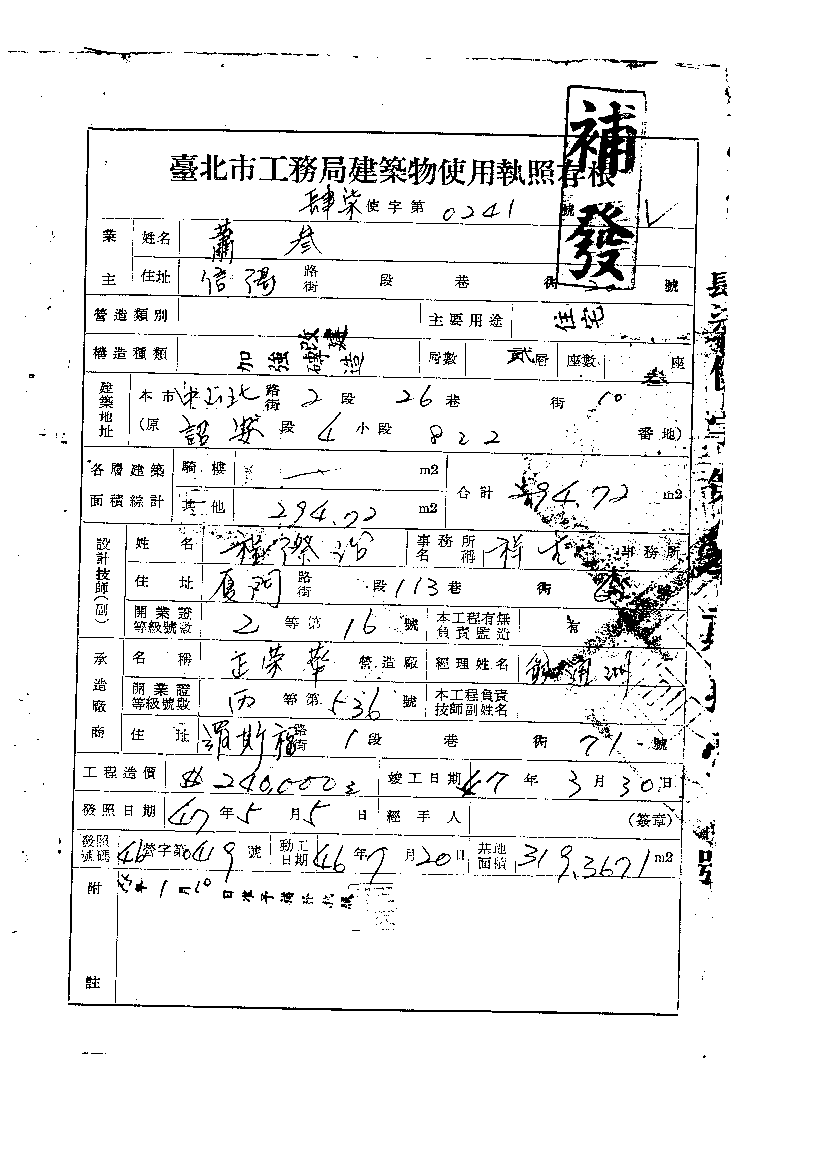 補發
臺北市工務局建築物使用執照存根
肆柒使字第 0241 號
業主 姓名 蕭 叁
住址 信陽 路街 段 巷 衖 號
營造類別 主要用途 住宅
構造種類 加強磚造 改建 層數 貳層 座數 叁座
建築地址 本市 中山北 路街 2 段 26 巷 衖 10
(原 詔安 段 4 小段 822 番地)
各層建築面積綜計 騎樓 一 m2 合計 294.72 m2
其他 294.72 m2
設計技師(副) 姓名 事務所名稱 事務所
住址 厦門 路街 段 113 巷 衖 號
開業證等級號數 2 等第 16 號 本工程有無負責監造 有
承造廠商 名稱 正榮華 營造廠 經理姓名
開業證等級號數 丙 等第 536 號 本工程負責技師副姓名
住址 羅斯福 路街 1 段 巷 衖 71 號
工程造價 240,000 竣工日期 47 年 3 月 30 日
發照日期 47 年 5 月 5 日 經手人 (簽章)
發照號碼 46 營字第 049 號 動工日期 46 年 7 月 20 日 基地面積 319.3671 m2
附註 年 1 月 10 日